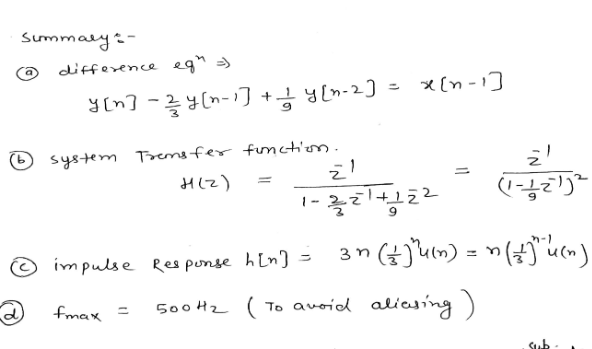 Summary:-
(a) difference eqⁿ ⇒
y[n] - 2/3 y[n-1] + 1/9 y[n-2] = x[n-1]
(b) system Transfer function.
H(z) = z⁻¹ / (1 - 2/3 z⁻¹ + 1/9 z⁻²) = z⁻¹ / (1 - 1/9 z⁻¹)²
(c) impulse Response h[n] = 3n (1/3)ⁿ u(n) = n (1/3)ⁿ⁻¹ u(n)
(d) fmax = 500 Hz ( To avoid aliasing )
sub.